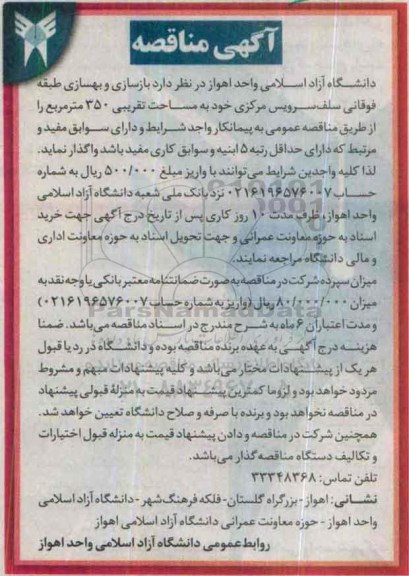 آگهی مناقصه
دانشگاه آزاد اسلامی واحد اهواز در نظر دارد بازسازی و بهسازی طبقه
فوقانی سلف‌سرویس مرکزی خود به مساحت تقریبی ۳۵۰ مترمربع را
از طریق مناقصه عمومی به پیمانکار واجد شرایط و دارای سوابق مفید و
مرتبط که دارای حداقل رتبه ۵ ابنیه و سوابق کاری مفید باشد واگذار نماید.
لذا کلیه واجدین شرایط می‌توانند با واریز مبلغ ۵۰۰/۰۰۰ ریال به شماره
حساب ۰۲۱۶۱۹۶۵۷۶۰۰۷ نزد بانک ملی شعبه دانشگاه آزاد اسلامی
واحد اهواز، ظرف مدت ۱۰ روز کاری پس از تاریخ درج آگهی جهت خرید
اسناد به حوزه معاونت عمرانی و جهت تحویل اسناد به حوزه معاونت اداری
و مالی دانشگاه مراجعه نمایند.
میزان سپرده شرکت در مناقصه به صورت ضمانتنامه معتبر بانکی یا وجه نقد به
میزان ۸۰/۰۰۰/۰۰۰ ریال (واریز به شماره حساب ۰۲۱۶۱۹۶۵۷۶۰۰۷)
و مدت اعتبار آن ۶ ماه به شرح مندرج در اسناد مناقصه می‌باشد. ضمنا
هزینه درج آگهی به عهده برنده مناقصه بوده و دانشگاه در رد یا قبول
هر یک از پیشنهادات مختار می‌باشد و کلیه پیشنهادات مبهم و مشروط
مردود خواهد بود و لزوما کمترین پیشنهاد قیمت به منزلهٔ قبولی پیشنهاد
در مناقصه نخواهد بود و برنده با صرفه و صلاح دانشگاه تعیین خواهد شد.
همچنین شرکت در مناقصه و دادن پیشنهاد قیمت به منزله قبول اختیارات
و تکالیف دستگاه مناقصه‌گذار می‌باشد.
تلفن تماس: ۳۳۳۴۸۳۶۸
نشانی: اهواز - بزرگراه گلستان- فلکه فرهنگ‌شهر - دانشگاه آزاد اسلامی
واحد اهواز - حوزه معاونت عمرانی دانشگاه آزاد اسلامی اهواز
روابط عمومی دانشگاه آزاد اسلامی واحد اهواز
ParsNamadData